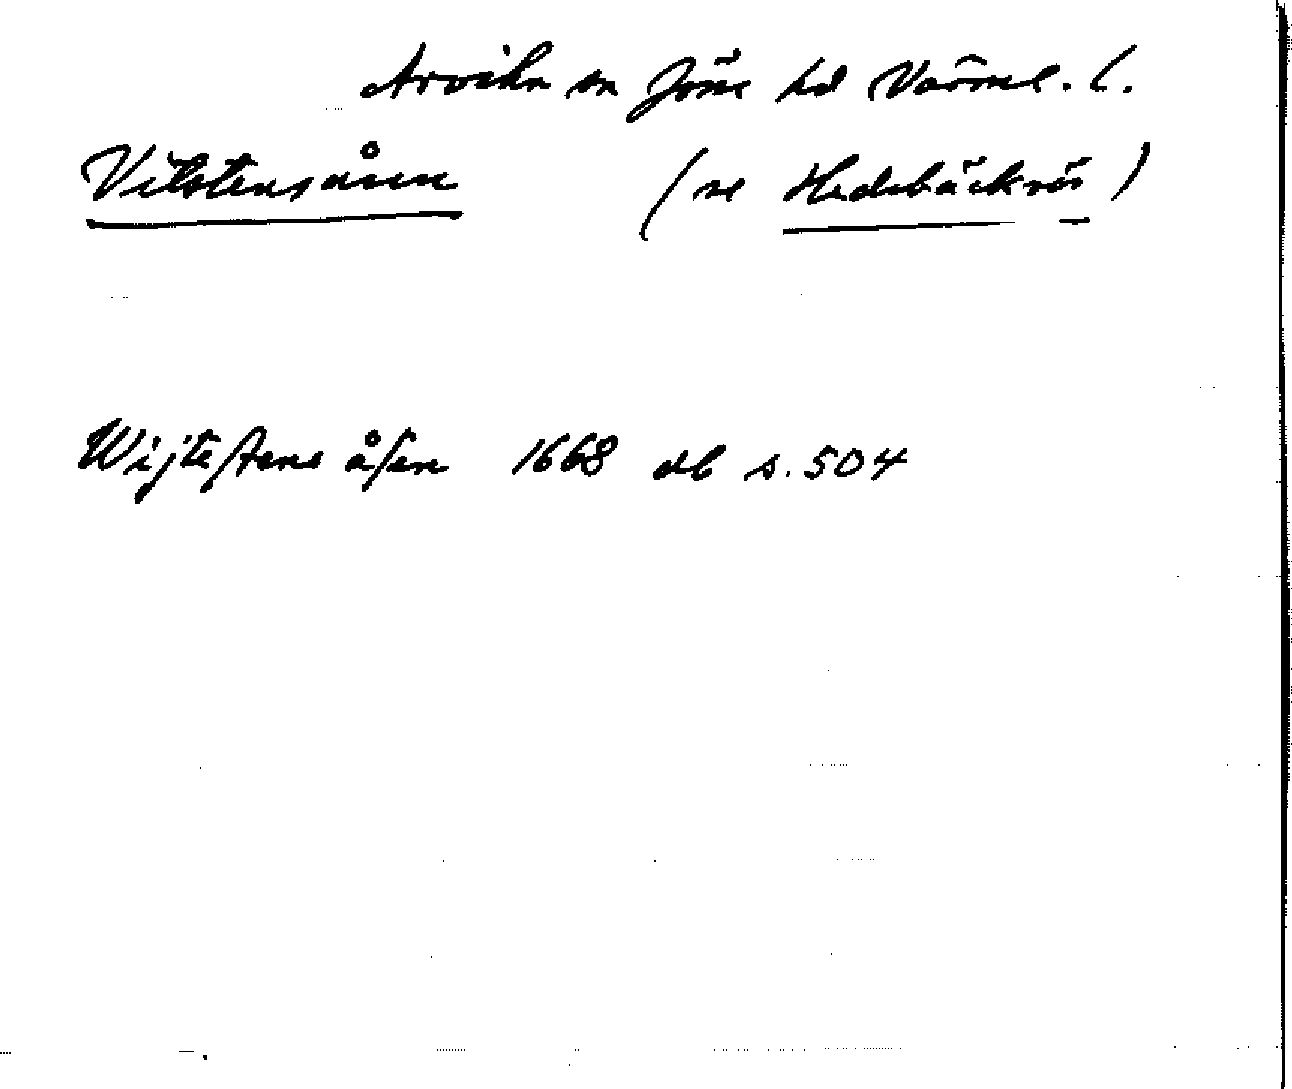 Arvika sn Jösse hd Värml. l.
Vitstensåsen (se Hedsbäckrös)
Wijtestens åsen 1668 db s. 504